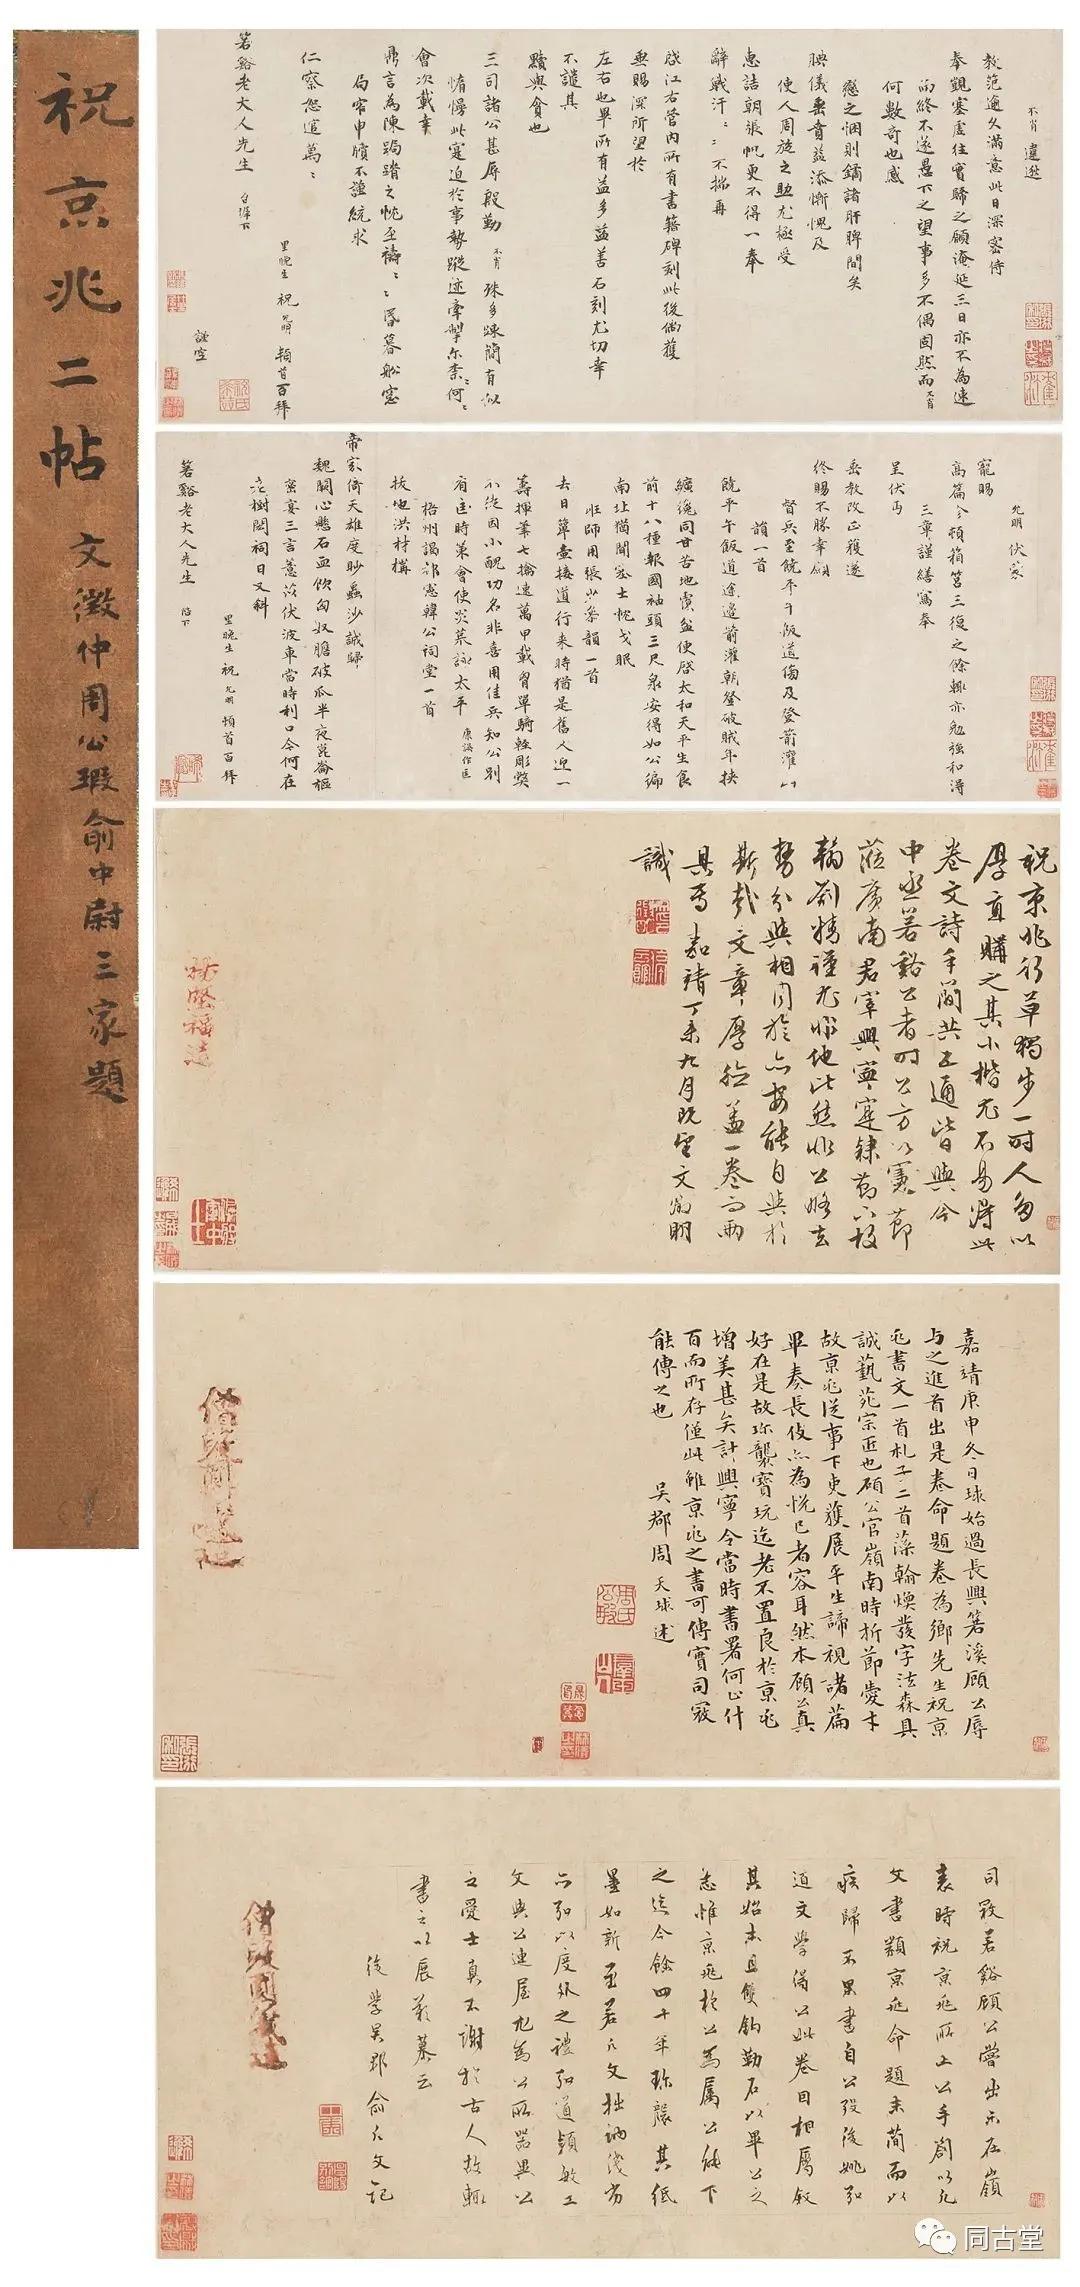 祝京兆二帖 文徵仲周公瑕俞中尉三家題
不肖違遠
教范逾久滿意此日深密侍
奉觀塞虛往實歸之願淹延三日亦不為速
而終不遂愚下之望事多不偶固然而不肖
何數奇也感
戀之悃則鏤諸肝脾間矣
腆儀垂賁益添慚愧及
使人周旋之助尤極受
惠詰朝張帆更不得一奉
辭戰汗〻不揣再
啓江右管內所有書籍碑刻此後倘獲
垂賜深所望於
左右也畢所有益多益善石刻尤切幸
不譴其
黷與貪也
三司諸公甚辱殷勤不肖殊多疎簡有似
惰慢此寔迫於事勢蹤迹牽掣尔柰何〻
會次載幸
鼎言為陳跼蹐之忱至禱〻昏暮舩窓
局窄申牘不謹統求
仁察恕逭萬〻
里晚生祝允明頓首百拜
箬谿老大人先生 台座下
謹空
允明伏蒙
寵賜
高篇今頓箱笥三復之餘輒亦勉強和得
三章謹繕寫奉
呈伏丐
垂教改正獲遂
終賜不勝幸願
督兵至饒平午飯道傷及登箭灌山
韻一首
饒平午飯道途邊箭灌朝登破賊年挾
纊纔同甘苦地囊盆使啓太和天平生食
前十八種報國袖頭三尺泉安得如公徧
南北猶聞容士枕戈眠
班師用張少參韻一首
去日簞壺接道行来時猶是舊人迎一
籌揮筆七擒速萬甲載胷單騎輕彫獎
小徒因小醜功名非喜用佳兵知公別
有匡時策會使炎荒詠太平
梧州謁都憲韓公祠堂一首
拔地洪材構
帝家倚天雄度眇蟲沙誠歸
魏闕心懸石血飲匈奴膽破瓜半夜崑崙樞
蜜宴三言薏苡伏波車當時利口今何在
老樹閟祠日又斜
里晚生祝允明頓首百拜
箬谿老大人先生 台下
祝京兆行草獨步一時人多以
厚直購之其小楷尤不易得此
卷文詩手簡共五通皆與今
中丞箬谿公者時公方以憲節
蒞廣南君宰興寧寔隸節下故
翰劄精謹尤非他比然非公略去
勢分與相周旋亦安能自與於
斯哉文章厚德盖一卷而兩
具焉嘉靖丁未九月既望文徵明
識
嘉靖庚申冬日球始過長興箬溪顧公辱
与之進首出是卷命題卷為鄉先生祝京
兆書文一首札子二首藻翰煥發字法森具
誠藝苑宗匠也顧公官嶺南時折節愛才
故京兆從事下吏獲展平生諦視諸篇
畢奏長伎亦為悅已者容耳然本顧公真
好在是故珎襲寶玩迄老不置良於京兆
增美甚矣計興寧令當時書署何止什
百而所存僅此雖京兆之書可傳實司寇
能傳之也 吳郡周天球述
司寇箬谿顧公嘗出示在嶺
表時祝京兆所上公手劄以允
文書類京兆命題未簡而以
疾歸不果書自公歿後姚敘
道文學得公此卷目相屬敘
其始末且雙鈎勒石以畢公之
志惟京兆於公為屬公能下
之迄今餘四十年珎襲其紙
墨如新至若允文拙訥淺劣
亦敘以度外之禮敘道頴敏工
文與公連屋尤為公所器異公
之愛士真不謝於古人故輒
書之以展嘆慕云
後學吳郡俞允文記
同古堂